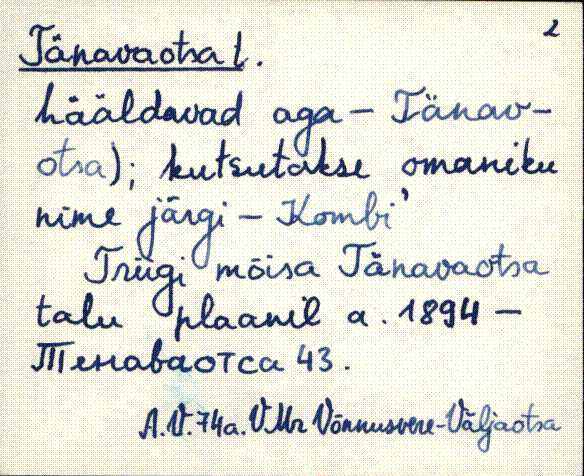 2
Tänavaotsa t.
hääldavad aga – Tänav-
otsa); kutsutakse omaniku
nime järgi – Kombi'
Triigi mõisa Tänavaotsa
talu plaanil a. 1894 –
Тенаваотса 43.
A.V. 74a. VMr Võnnusvere-Väljaotsa